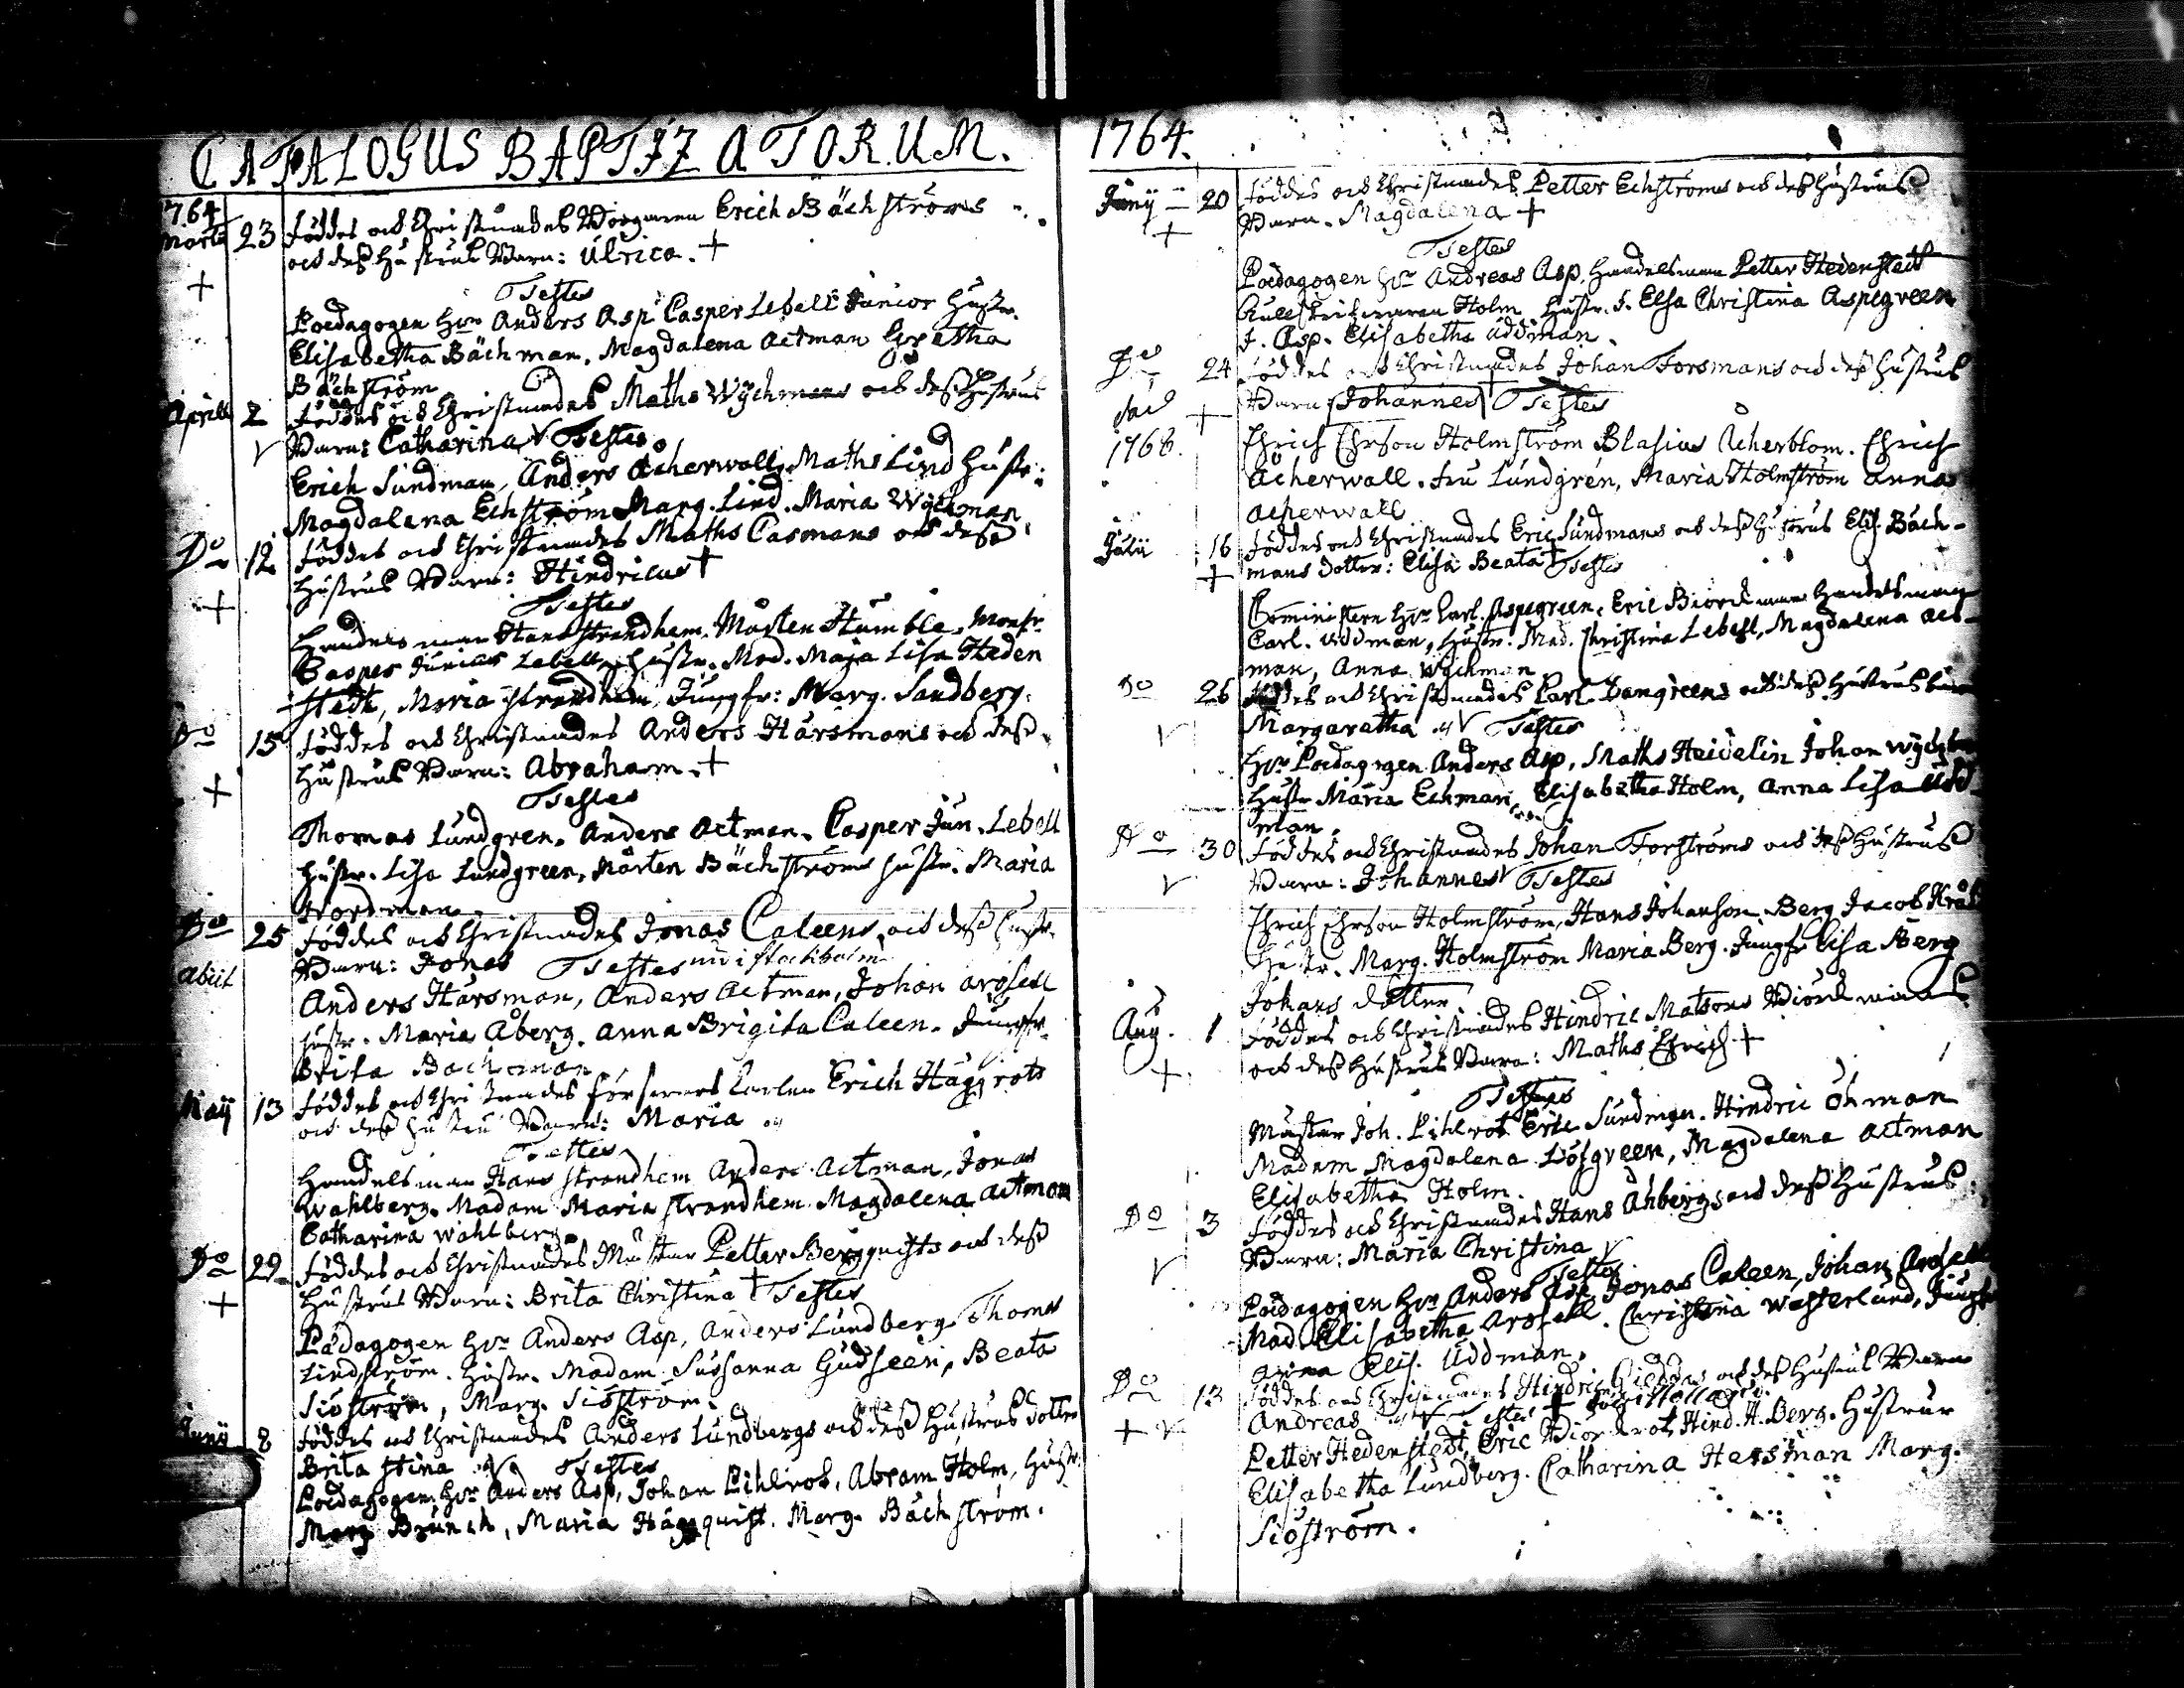 CATALOGUS BAPTIZATORUM.
1764
Martii 23 föddes och Christnades Borgaren Erich Bäckströms
och dess Hustrus Barn: Ulrica. +
+
Testes
Poedagogen Hr Anders Asp. Casper Lebell Junior Hustr.
Elisabetha Bäckman. Magdalena Actman Gretha
Bäckström
Aprill 2 föddes och Christnades Maths Wyckmans och dess Hustrus
Barn: Catharina V Testes
Erich Sundman, Anders Åcherwall, Maths Lind Hustr:
Magdalena Echström Marg. Lind. Maria Wyckman
Do 12. föddes och Christnades Maths Casmans och dess
Hustrus Barn: Hindricus +
+
Testes
Handelsman Hans Strandhem. Mårten Humble. Monsr
Casper Junior Lebell, Hustr. Mad. Maja Lisa Heden
stedt, Maria Strandhem, Jungfr: Marg. Sandberg.
Do 15 föddes och Christnades Anders Hårsmans och dess
Hustrus Barn: Abraham. +
+
Testes
Thomas Lundgren. Anders Actman. Casper Jun. Lebell
Hustr. Lisa Lundgreen, Mårten Bäckströms Hustr. Maria
Nordman.
Do 25 föddes och Christnades Jonas Caleens och dess Hustr.
Barn: Jonas Testes nu i Stockholm
abiit
Anders Hårsman, Anders Actman, Johan Arosell
Hustr. Maria Åberg. Anna Brigita Caleen. Jungfr.
Brita Backman
Maij 13 föddes och Christnades Erich Häggrots
och dess Hustru Barn: Maria
Testes
Handelsman Hans Strandhem Anders Actman, Jonas
Wahlberg. Madam Maria Strandhem. Magdalena Actman
Catharina Wahlberg.
Do 29 föddes och Christnades Mästar Petter Bergquists och dess
Hustrus Barn: Brita Christina + Testes
+
Pædagogen Hr Anders Asp, Anders Lundberg Thomas
Lindström. Hustr. Madam Sussanna Gudseen, Beata
Siöström, Marg. Siöström.
Junij 8 föddes och Christnades Anders Lundbergs och dess Hustrus dotter
Brita Stina V Testes
Poedagogen Hr Anders Asp, Johan Pihlrot, Abram Holm, Hustr.
Marg Brunck, Maria Häggquist. Marg. Bäckström.
1764.
Junij 20 föddes och Christnades Petter Echströms och dess Hustrus
Barn. Magdalena +
+
Testes
Poedagogen Hr Andreas Asp, Handelsman Petter Hedenstedt
Holm. Hustr. J. Elsa Christina Aspegreen
J. Asp. Elisabetha Uddman.
Do 24 föddes och Christnades Johan Forsmans och dess Hustrus
Barn Johannes + Testes
+
1768.
Ehrich Ehrson Holmström Blasius Åcherblom. Ehrich
Åcherwall. Fru Lundgrén, Maria Holmström Anna
Acherwall
Julii 16 föddes och Christnades Eric Sundmans och dess Hustrus Elis. Bäck-
mans dotter: Elisa Beata + Testes
+
Comministern Hr Carl. Aspegreen, Eric Biörckman Handelsman
Carl. Uddman, Hustr. Mad. Christina Lebell, Magdalena Act-
man, Anna Wyckman
Do 26 föddes och Christnades Carl Damgreens och dess Hustrus barn
Margaretha V Testes
V
Hr Poedagogen Anders Asp, Maths Heidelin Johan
Hustr Maria Echman, Elisabetha Holm, Anna Lisa Udd-
man.
Do 30 föddes och Christnades Johan Forströms och dess Hustrus
Barn: Johannes V Testes
V
Ehrich Ehrson Holmström, Hans Johanson Berg Jacob
Hustr. Marg. Holmström Maria Berg. Jungfr Lisa Berg
Johans dotter
Aug. 1 föddes och Christnades Hindric Matsons
och dess Hustrus Barn: Maths Ehrich +
+
Testes
Mästar Joh. Pihlrot Eric Sundman. Hindric Öhman
Madam Magdalena Löfgreen, Magdalena Actman
Elisabetha Holm.
Do 3 föddes och Christnades Hans Åhbergs och dess Hustrus
Barn: Maria Christina V
V
Testes
Poedagogen Hr Anders Asp Jonas Caleen, Johan Arosell
Mad Elisabetha Arosell. Christina Westerlund, Jungfr
Anna Elis. Uddman.
Do 13 föddes och Christnades Hindric Gieddas och dess Hustrus Barn
Andreas Testes +
+ V
Petter Hedenstedt, Eric Hind. H. Berg. Hustrur
Elisabetha Lundberg. Catharina Hersman Marg.
Siöström.